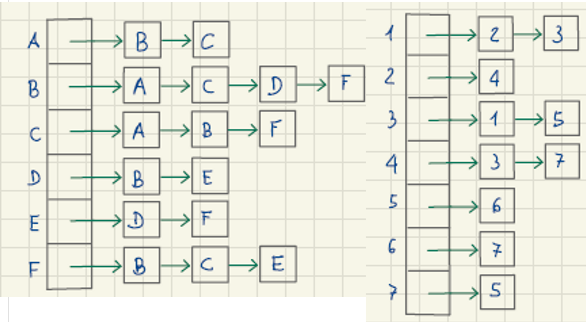 A B C
B A C D F
C A B F
D B E
E D F
F B C E
1 2 3
2 4
3 1 5
4 3 7
5 6
6 7
7 5